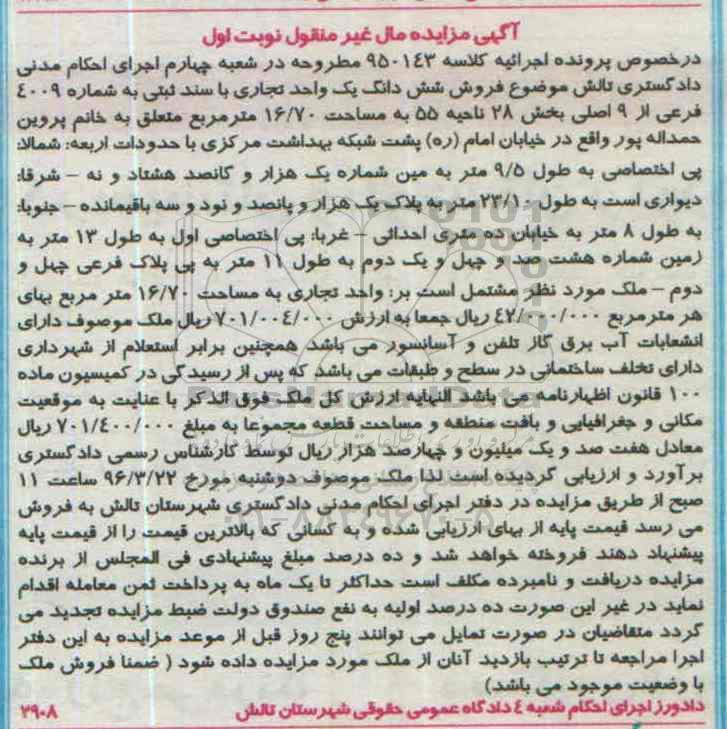 آگهی مزایده مال غیر منقول نوبت اول
درخصوص پرونده اجرائیه کلاسه ۹۵۰۱۴۳ مطروحه در شعبه چهارم اجرای احکام مدنی
دادگستری تالش موضوع فروش شش دانگ یک واحد تجاری با سند ثبتی به شماره ۴۰۰۹
فرعی از ۹ اصلی بخش ۲۸ ناحیه ۵۵ به مساحت ۱۶/۷۰ مترمربع متعلق به خانم پروین
حمداله پور واقع در خیابان امام (ره) پشت شبکه بهداشت مرکزی با حدودات اربعه: شمالا:
پی اختصاصی به طول ۹/۵ متر به مین شماره یک هزار و کانصد هشتاد و نه – شرقا:
دیواری است به طول ۲۳/۱۰ متر به پلاک یک هزار و پانصد و نود و سه باقیمانده – جنوبا:
به طول ۸ متر به خیابان ده متری احداثی – غربا: پی اختصاصی اول به طول ۱۳ متر به
زمین شماره هشت صد و چهل و یک دوم به طول ۱۱ متر به پی پلاک فرعی چهل و
دوم – ملک مورد نظر مشتمل است بر: واحد تجاری به مساحت ۱۶/۷۰ متر مربع بهای
هر مترمربع ۴۲/۰۰۰/۰۰۰ ریال جمعا به ارزش ۷۰۱/۰۰۴/۰۰۰ ریال ملک موصوف دارای
انشعابات آب برق گاز تلفن و آسانسور می باشد همچنین برابر استعلام از شهرداری
دارای تخلف ساختمانی در سطح و طبقات می باشد که پس از رسیدگی در کمیسیون ماده
۱۰۰ قانون اظهارنامه می باشد النهایه ارزش کل ملک فوق الذکر با عنایت به موقعیت
مکانی و جغرافیایی و بافت منطقه و مساحت قطعه مجموعا به مبلغ ۷۰۱/۴۰۰/۰۰۰ ریال
معادل هفت صد و یک میلیون و چهارصد هزار ریال توسط کارشناس رسمی دادگستری
برآورد و ارزیابی گردیده است لذا ملک موصوف دوشنبه مورخ ۹۶/۳/۲۲ ساعت ۱۱
صبح از طریق مزایده در دفتر اجرای احکام مدنی دادگستری شهرستان تالش به فروش
می رسد قیمت پایه از بهای ارزیابی شده و به کسانی که بالاترین قیمت را از قیمت پایه
پیشنهاد دهند فروخته خواهد شد و ده درصد مبلغ پیشنهادی فی المجلس از برنده
مزایده دریافت و نامبرده مکلف است حداکثر تا یک ماه به پرداخت ثمن معامله اقدام
نماید در غیر این صورت ده درصد اولیه به نفع صندوق دولت ضبط مزایده تجدید می
گردد متقاضیان در صورت تمایل می توانند پنج روز قبل از موعد مزایده به این دفتر
اجرا مراجعه تا ترتیب بازدید آنان از ملک مورد مزایده داده شود ( ضمنا فروش ملک
با وضعیت موجود می باشد)
دادورز اجرای احکام شعبه ۴ دادگاه عمومی حقوقی شهرستان تالش
۲۹۰۸